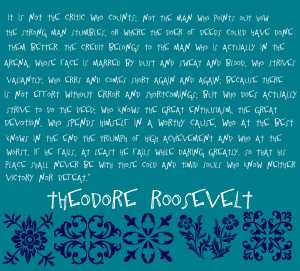 IT IS NOT THE CRITIC WHO COUNTS: NOT THE MAN WHO POINTS OUT HOW
THE STRONG MAN STUMBLES, OR WHERE THE DOER OF DEEDS COULD HAVE DONE
THEM BETTER. THE CREDIT BELONGS TO THE MAN WHO IS ACTUALLY IN THE
ARENA, WHOSE FACE IS MARRED BY DUST AND SWEAT AND BLOOD, WHO STRIVES
VALIANTLY; WHO ERRS AND COMES SHORT AGAIN AND AGAIN; BECAUSE THERE
IS NOT EFFORT WITHOUT ERROR AND SHORTCOMINGS; BUT WHO DOES ACTUALLY
STRIVE TO DO THE DEED; WHO KNOWS THE GREAT ENTHUSIASM, THE GREAT
DEVOTION, WHO SPENDS HIMSELF IN A WORTHY CAUSE, WHO AT THE BEST
KNOWS IN THE END THE TRIUMPH OF HIGH ACHIEVEMENT AND WHO AT THE
WORST, IF HE FAILS, AT LEAST HE FAILS WHILE DARING GREATLY. SO THAT HIS
PLACE SHALL NEVER BE WITH THOSE COLD AND TIMID SOULS WHO KNOW NEITHER
VICTORY NOR DEFEAT."
THEODORE ROOSEVELT